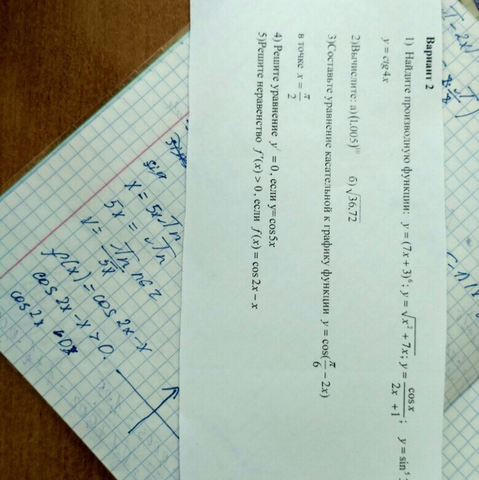 Вариант 2
1) Найдите производную функции: y = (7x + 3)⁶; y = √(x² + 7x); y = cos x / (2x + 1); y = sin⁵
y = ctg 4x
2)Вычислите: а)(1,005) б) √36,72
3)Составьте уравнение касательной к графику функции y = cos(π/6 − 2x)
в точке x = π/2
4) Решите уравнение y′ = 0, если y= cos 5x
5)Решите неравенство f′(x) > 0, если f(x) = cos 2x − x
x = 5x πn
5x = πn
x = πn/5x n∈Z
f(x) = cos 2x − x
cos 2x − x > 0.
cos 2x